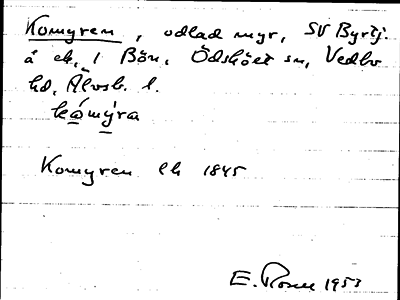 Komyren, odlad myr, SV Byrtj.
å ek, 1 Bön, Ödsköet sn, Vedbo
hd, Älvsb. l.
kómýra
Komyren ek 1845
E. Rosell 1953